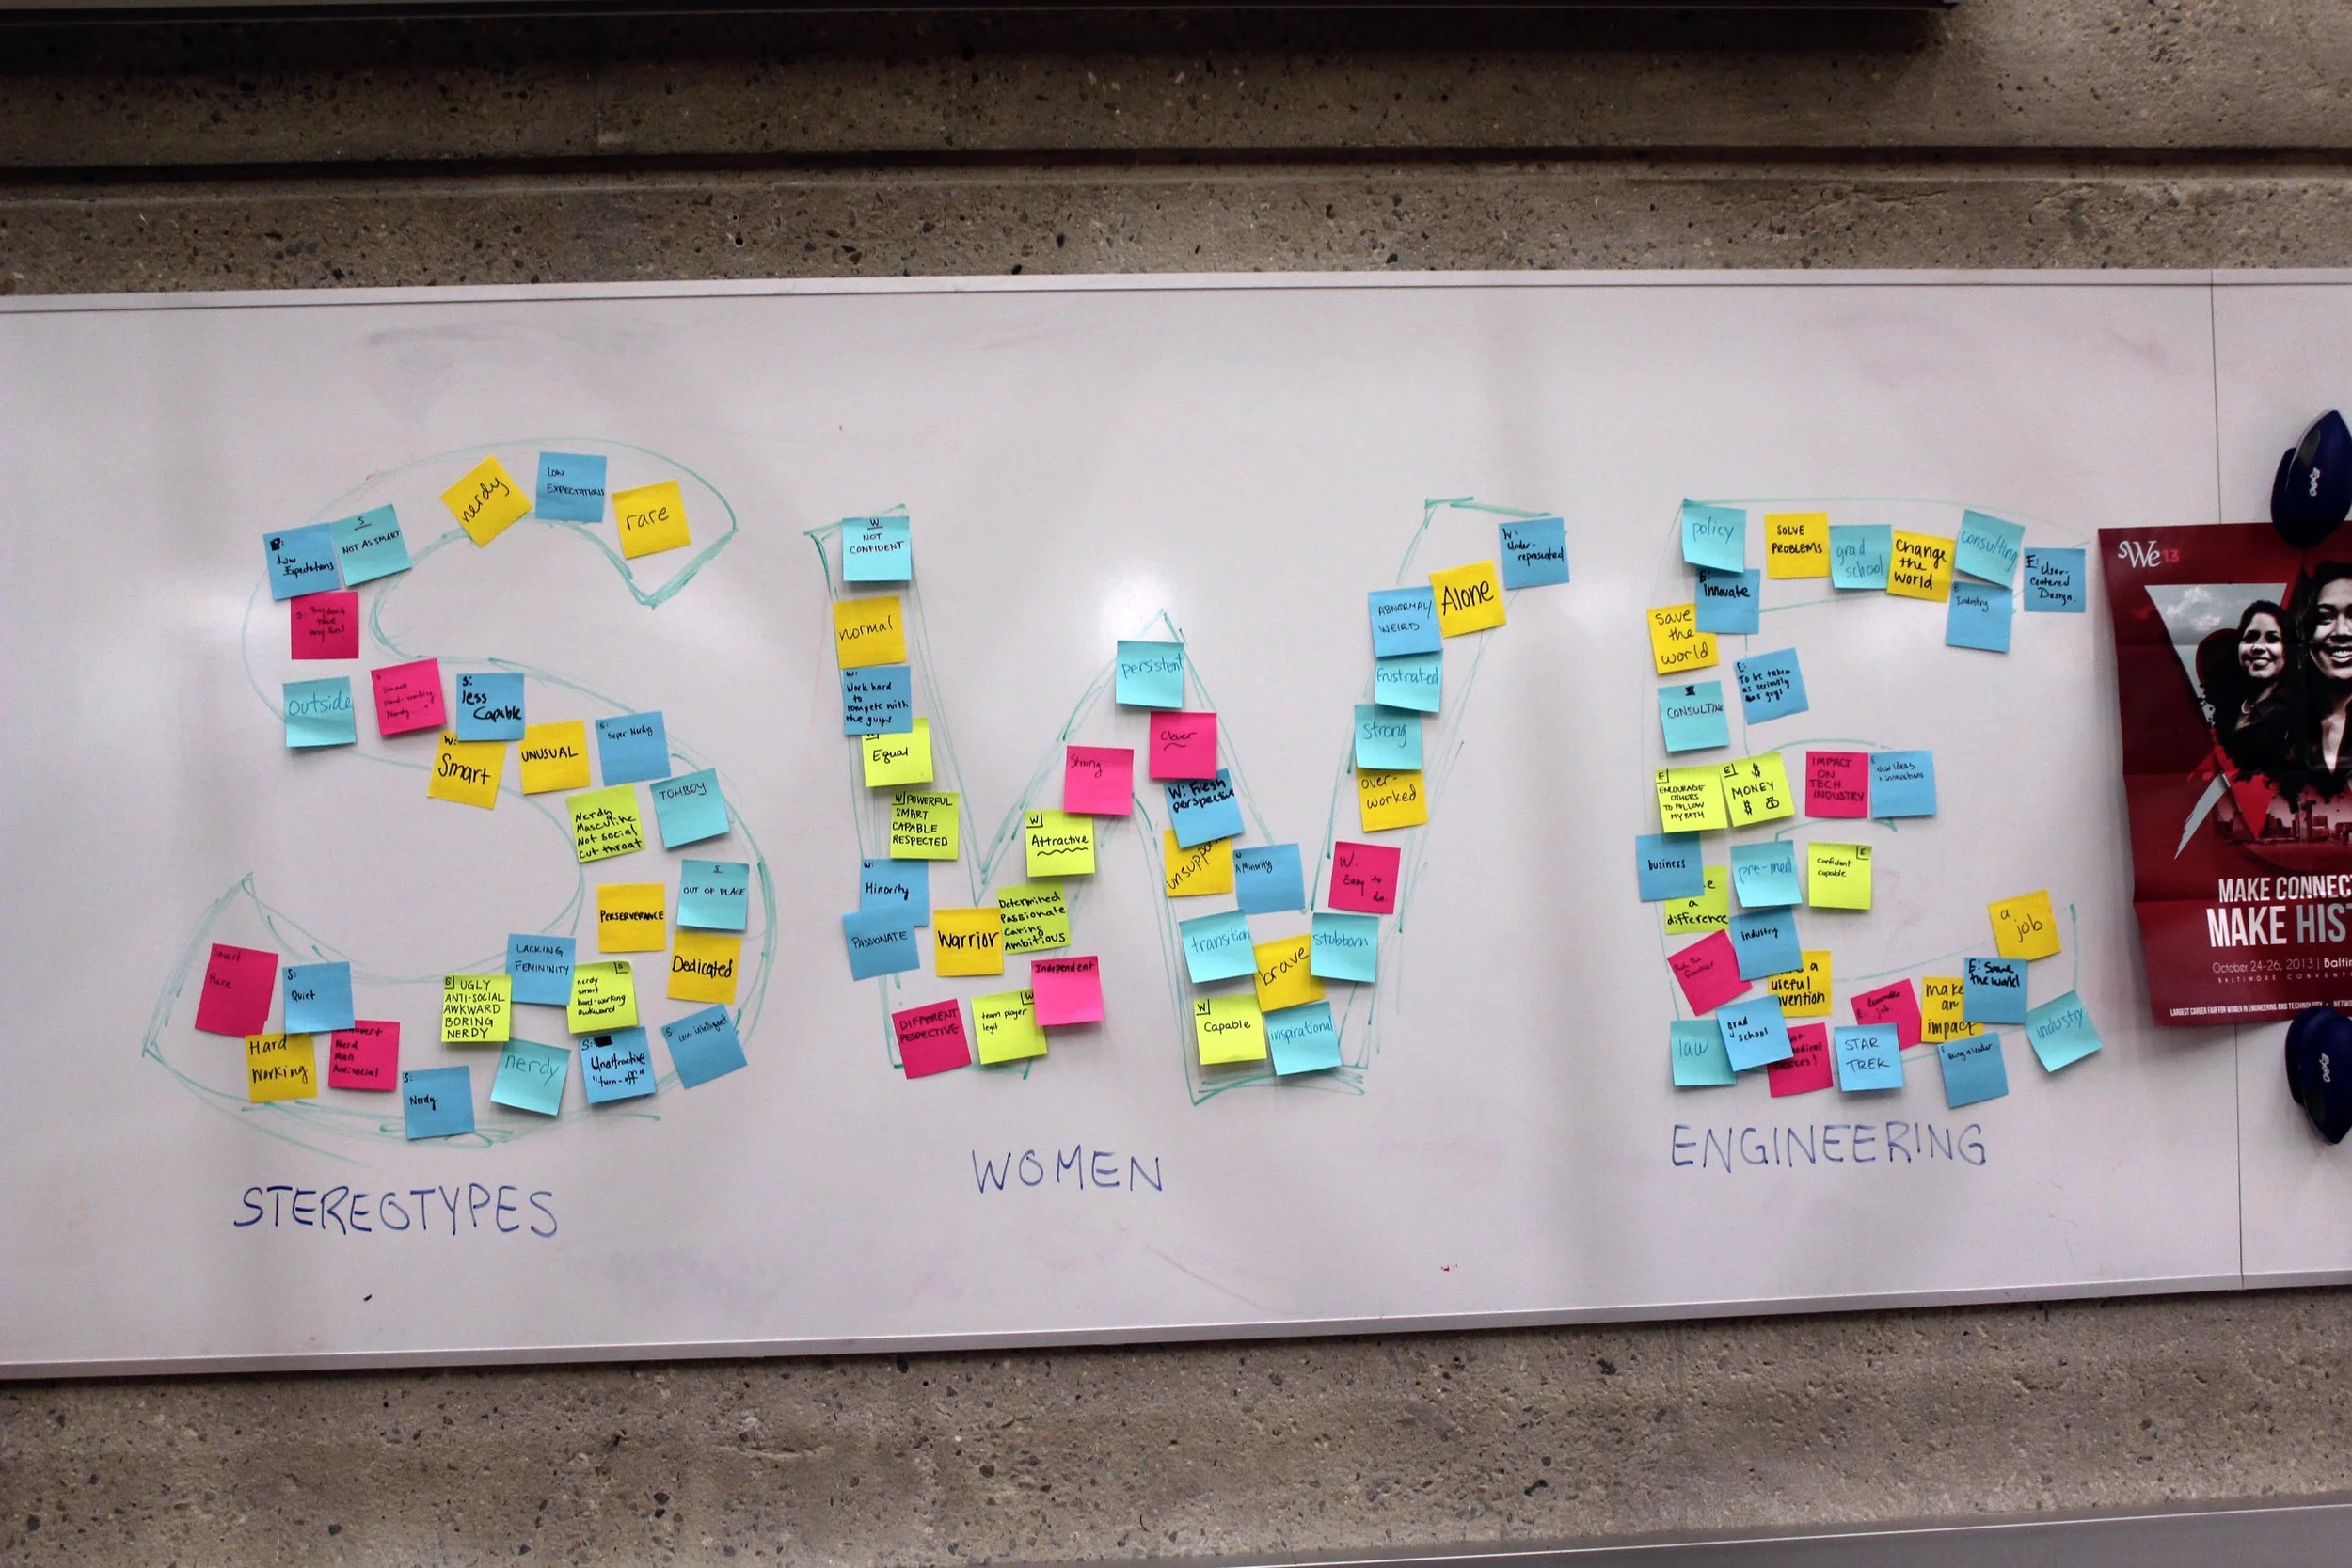 nerdy
LOW
EXPECTATIONS
rare
S
NOT AS SMART
Low
Expectations
S: They don't
have
any fun!
outside
S:
Smart
Hard-working
Nerdy
S:
less
Capable
W:
Smart
UNUSUAL
S:
Super Nerdy
TOMBOY
Nerdy
Masculine
Not social
Cut throat
S
OUT OF PLACE
PERSERVERANCE
Dedicated
LACKING
FEMININITY
S
nerdy
smart
hard-working
awkward
S UGLY
ANTI-SOCIAL
AWKWARD
BORING
NERDY
Smart
Rare
S:
Quiet
Hard
Working
Nerd
Man
Antisocial
S:
Nerdy
nerdy
S:
Unattractive
"turn-off"
S
Less intelligent
STEREOTYPES
W
NOT
CONFIDENT
normal
W:
Work hard
to
compete with
the guys
Equal
W POWERFUL
SMART
CAPABLE
RESPECTED
W:
Minority
PASSIONATE
Warrior
Determined
Passionate
Caring
Ambitious
DIFFERENT
PESPECTIVE
W
team player
legit
Independent
W
Attractive
Strong
persistent
Clever
W: Fresh
perspective
W:
A Minority
transition
brave
stubborn
W
Capable
inspirational
W.
Easy to
do.
over-
worked
strong
frustrated
ABNORMAL/
WEIRD
Alone
W:
Under-
represented
WOMEN
policy
SOLVE
PROBLEMS
grad
school
Change
the
world
consulting
E:
User-
Centered
Design.
E:
Innovate
E
Industry
save
the
world
E:
To be taken
as seriously
as guys!
CONSULTING
E
ENCOURAGE
OTHERS
TO FOLLOW
MY PATH
E $
MONEY
$
IMPACT
ON
TECH
INDUSTRY
E:
New Ideas
+ innovations
business
pre-med
E
Confident
Capable
a
difference
industry
a
job
a
useful
make
an
impact
E: Save
the world
law
grad
school
STAR
TREK
E:
being a leader
industry
ENGINEERING
We13
MAKE CONNECT
MAKE HIST
October 24-26, 2013 | Balti
BALTIMORE CONVENT
LARGEST CAREER FAIR FOR WOMEN IN ENGINEERING AND TECHNOLOGY • NETWO
expo
expo